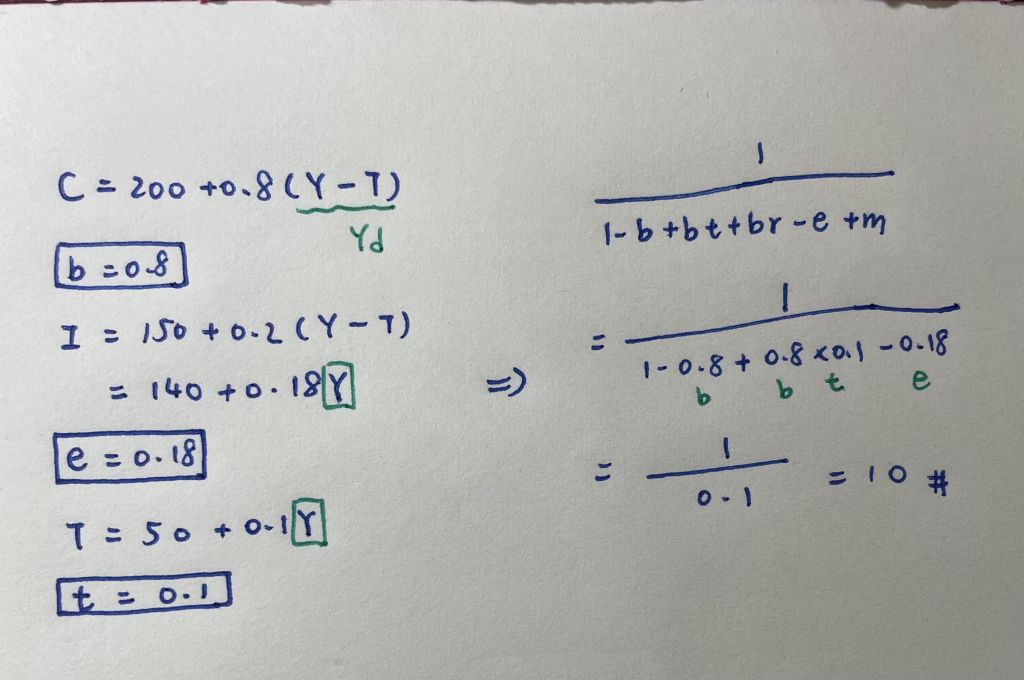 C = 200 + 0.8 (Y - T)
Yd
b = 0.8
I = 150 + 0.2 (Y - T)
= 140 + 0.18 Y
e = 0.18
T = 50 + 0.1 Y
t = 0.1
=>
1
1 - b + bt + br - e + m
= 1
1 - 0.8 + 0.8 × 0.1 - 0.18
b b t e
= 1
0.1
= 10 #